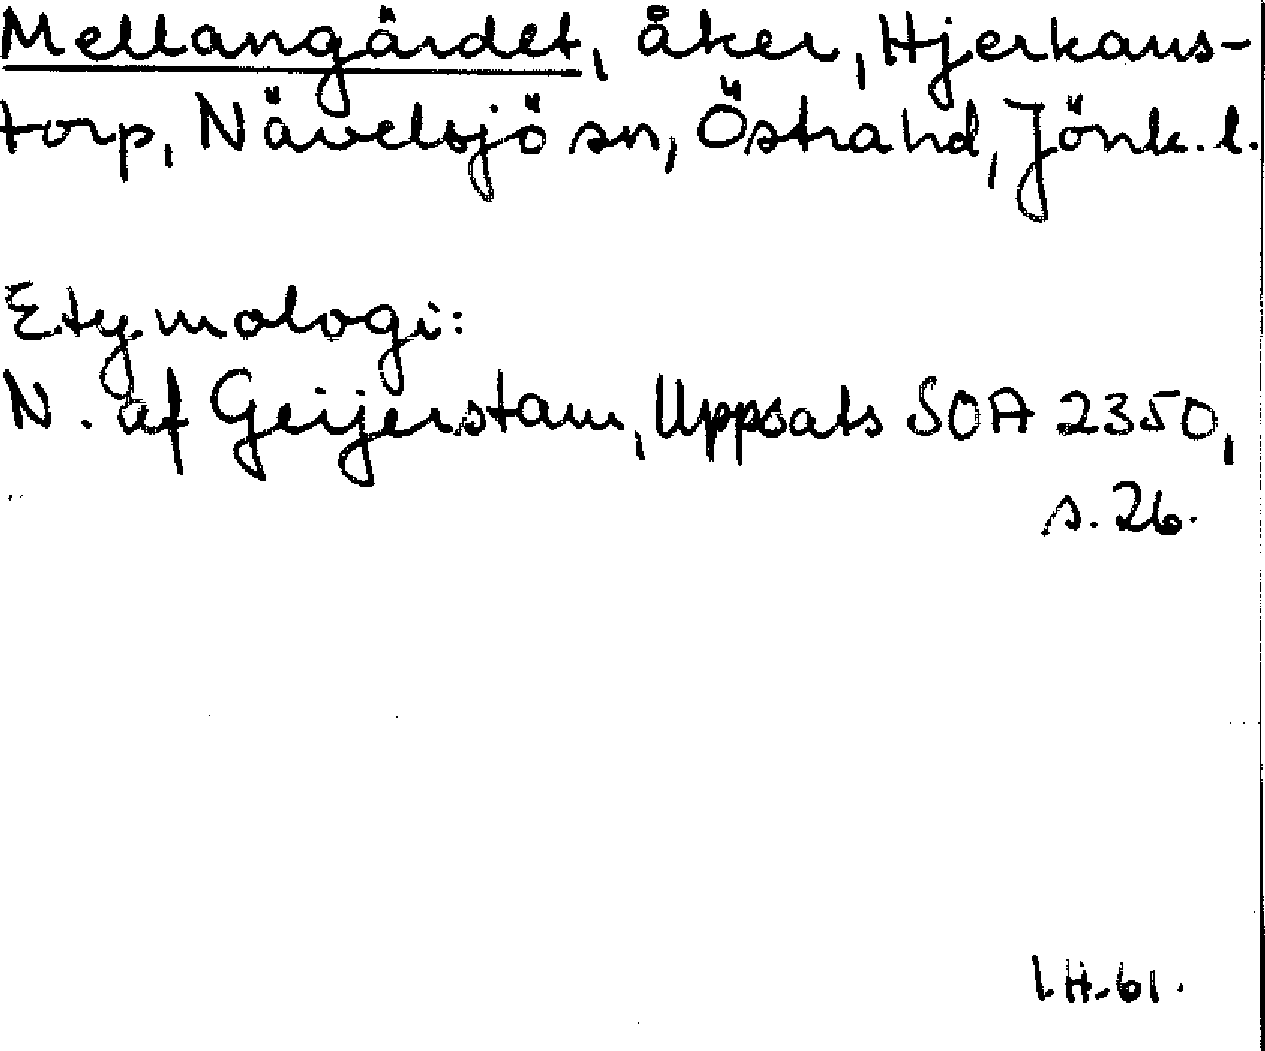 Mellangärdet, åker, Hjerkans-
torp, Nävelsjö sn, Östra hd, Jönk. l.
Etymologi:
N. af Geijerstam, Uppsats SOA 2350,
s. 26.
I.H.-61.